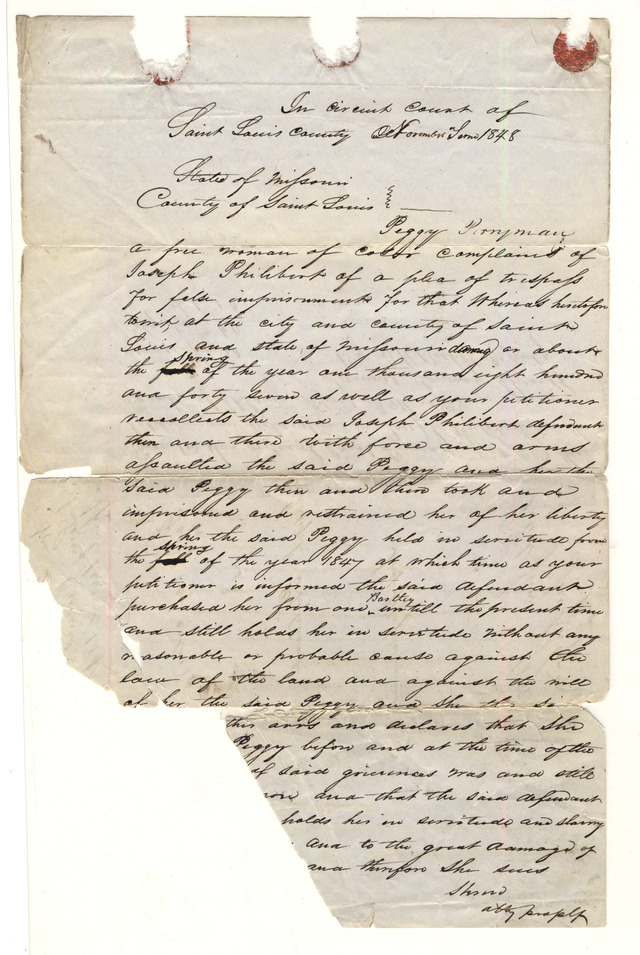 In circuit court of
Saint Louis County Novembr Term 1848
State of Missouri
County of Saint Louis
Peggy Perryman
a free woman of color complains of
Joseph Philibert of a plea of trespass
for false imprisonment for that Whereas heretofore
towit at the city and county of Saint
Louis and state of Missouri or about
spring
the of the year one thousand eight hundred
and forty seven as well as your petitioner
recollects the said Joseph Philibert defendant
then and there with force and arms
assaulted the said Peggy and her the
said Peggy then and there took and
imprisoned and restrained her of her liberty
and her the said Peggy held in servitude from
spring
the fall of the year 1847 at which time as your
petitioner is informed the said defendant
Bartley
purchased her from one untill the present time
and still holds her in servitude without any
reasonable or probable cause against the
law of the land and against the will
of her the said Peggy and she the sa
ther avers and declares that she
Peggy before and at the time of the
of said grievences was and still
and that the said defendant
holds her in servitude and slavery
and to the great damage of
and therefore she sues
atty for plf